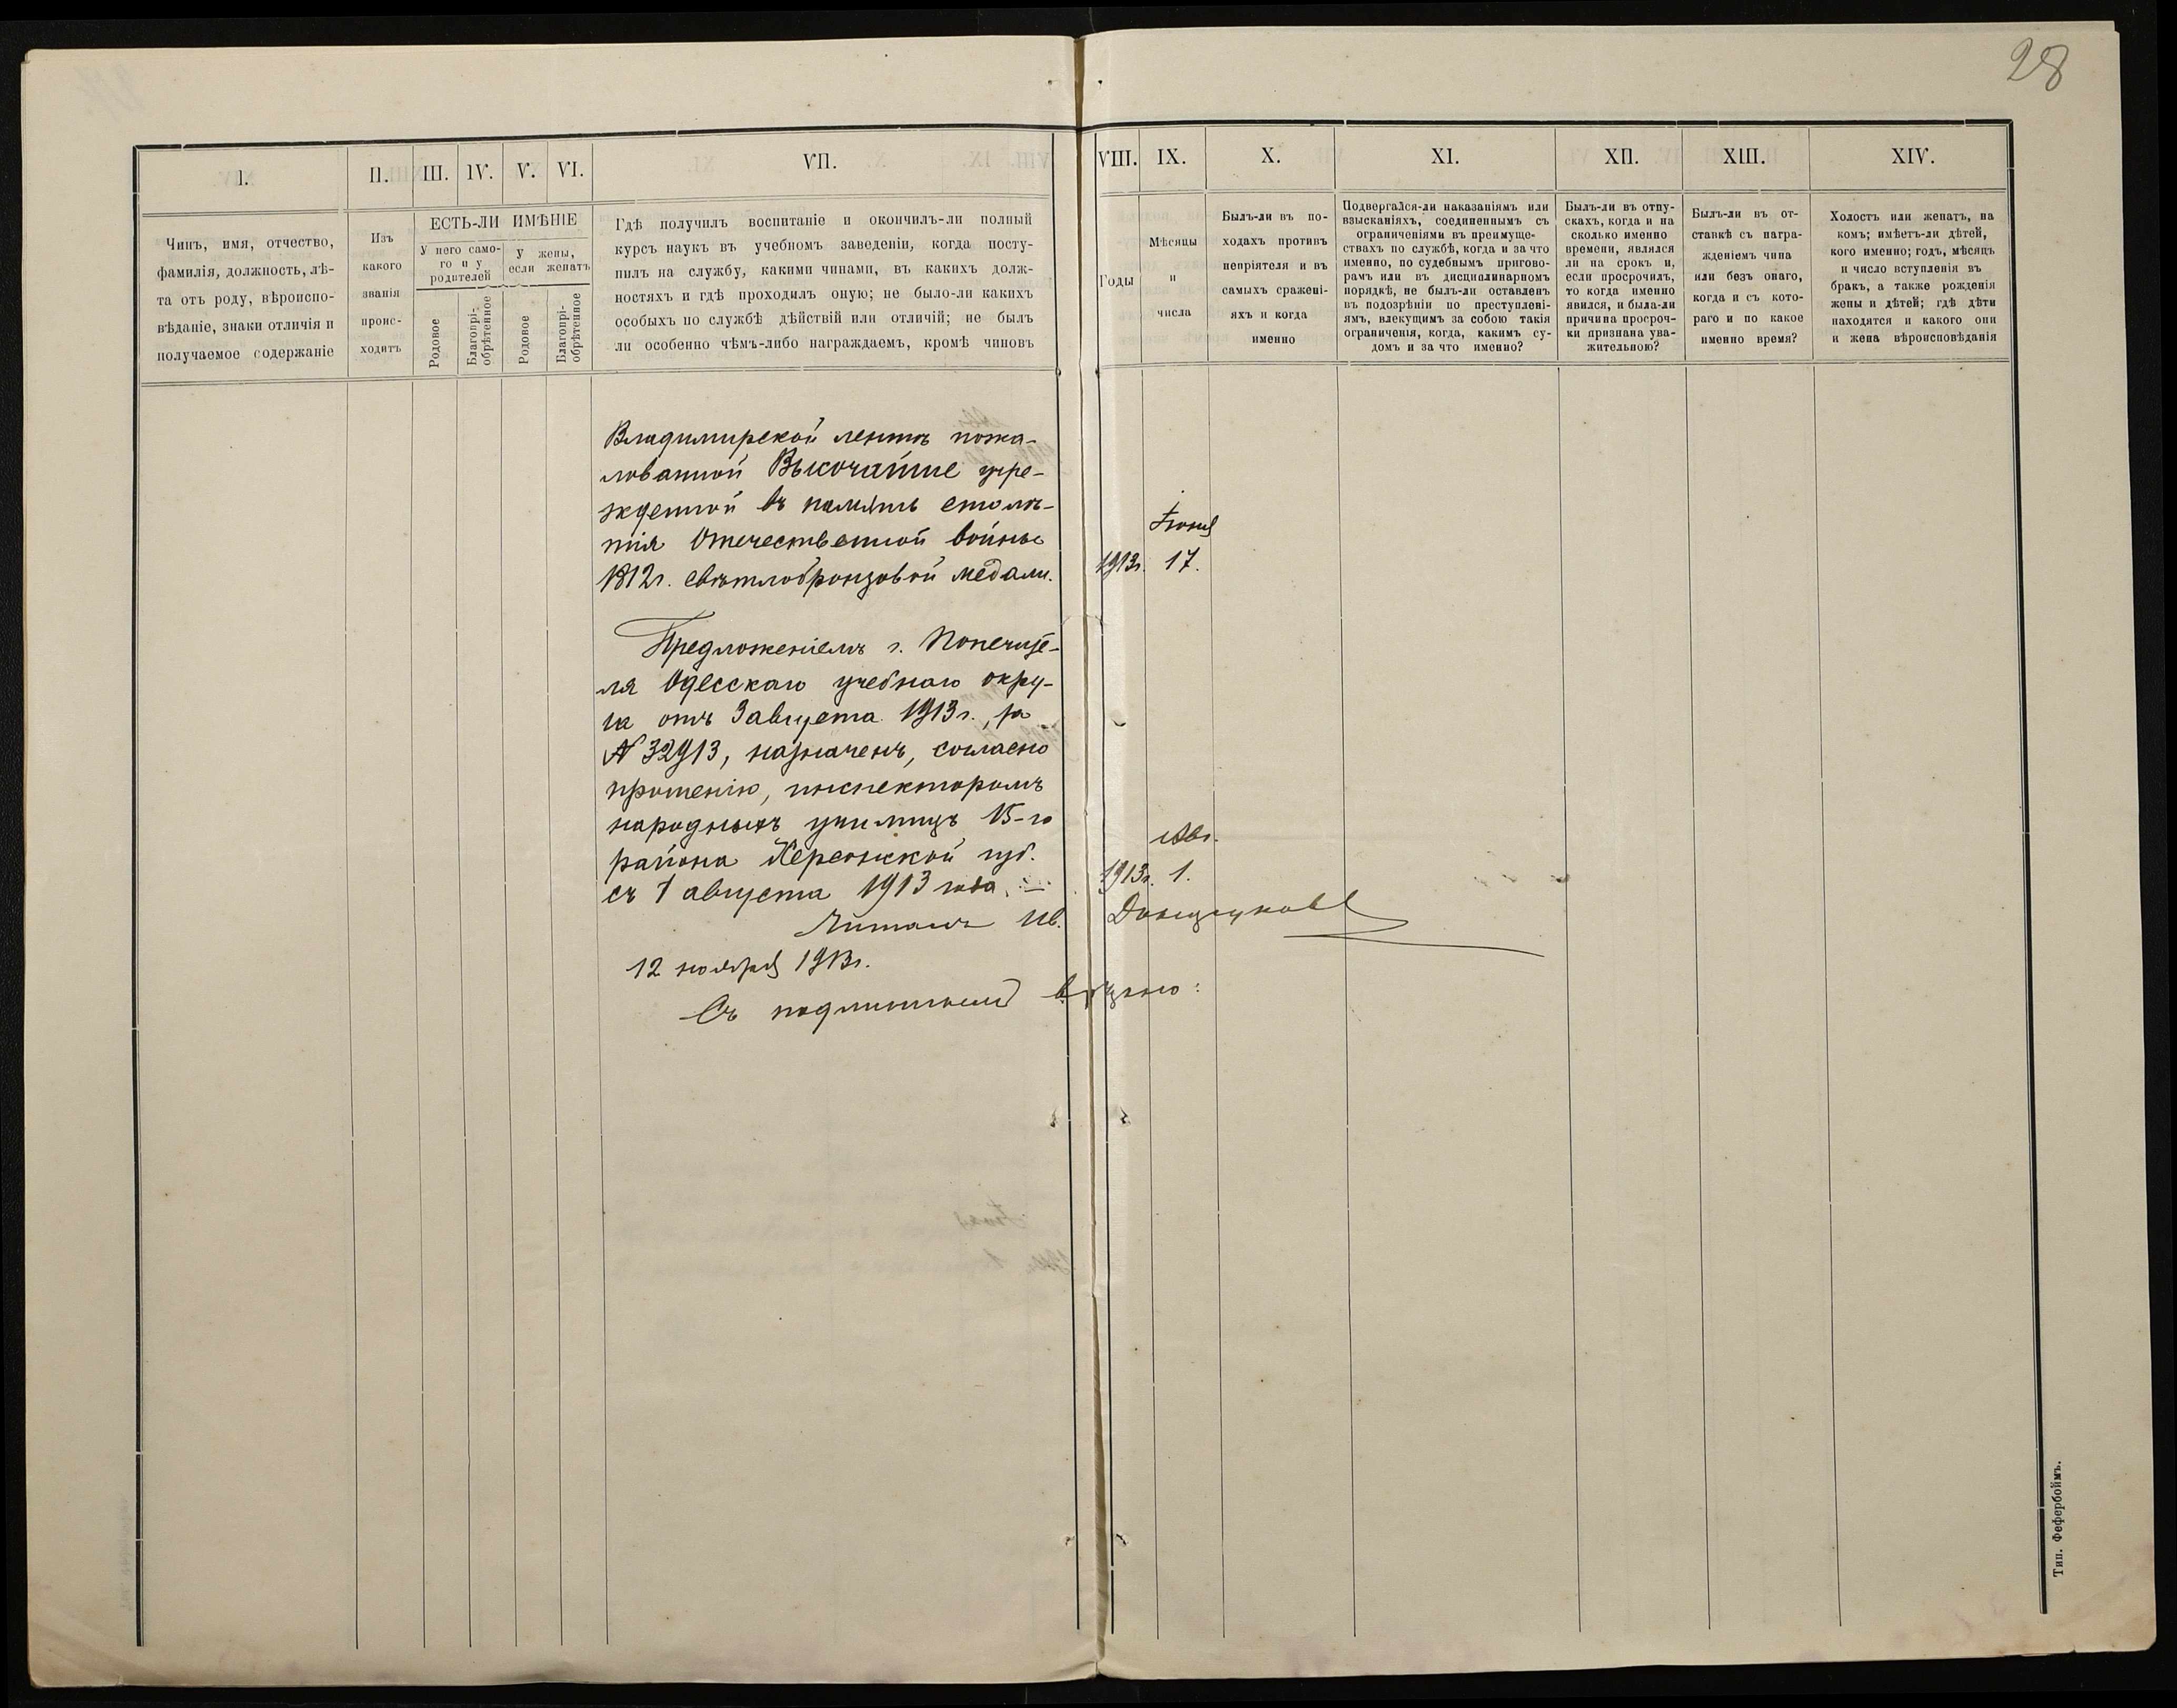 28
I.
II.
III.
IV.
V.
VI.
VII.
VIII.
IX.
X.
XI.
XII.
XIII.
XIV.
Чинъ, имя, отчество,
фамилія, должность, лѣ-
та отъ роду, вѣроиспо-
вѣданіе, знаки отличія и
получаемое содержаніе
Изъ
какого
званія
проис-
ходитъ
ЕСТЬ-ЛИ ИМѢНІЕ
У него само-
го и у
родителей
У жены,
если женатъ
Родовое
Благопрі-
обрѣтенное
Родовое
Благопрі-
обрѣтенное
Гдѣ получилъ воспитаніе и окончилъ-ли полный
курсъ наукъ въ учебномъ заведеніи, когда посту-
пилъ на службу, какими чинами, въ какихъ долж-
ностяхъ и гдѣ проходилъ оную; не было-ли какихъ
особыхъ по службѣ дѣйствій или отличій; не былъ
ли особенно чѣмъ-либо награждаемъ, кромѣ чиновъ
Годы
Мѣсяцы
и
числа
Былъ-ли въ по-
ходахъ противъ
непріятеля и въ
самыхъ сражені-
яхъ и когда
именно
Подвергался-ли наказаніямъ или
взысканіяхъ, соединеннымъ съ
ограниченіями въ преимуще-
ствахъ по службѣ, когда и за что
именно, по судебнымъ пригово-
рамъ или въ дисциплинарномъ
порядкѣ, не былъ-ли оставленъ
въ подозрѣніи по преступлені-
ямъ, влекущимъ за собою такія
ограниченія, когда, какимъ су-
домъ и за что именно?
Былъ-ли въ отпу-
скахъ, когда и на
сколько именно
времени, являлся
ли на срокъ и,
если просрочилъ,
то когда именно
явился, и была-ли
причина просроч-
ки признана ува-
жительною?
Былъ-ли въ от-
ставкѣ съ награ-
жденіемъ чина
или безъ онаго,
когда и съ кото-
раго и по какое
именно время?
Холостъ или женатъ, на
комъ; имѣетъ-ли дѣтей,
кого именно; годъ, мѣсяцъ
и число вступленія въ
бракъ, а также рожденія
жены и дѣтей; гдѣ дѣти
находятся и какого они
и жена вѣроисповѣданія
Владимирской лентѣ пожа-
лованной Высочайше учре-
жденной въ память столѣ-
тія Отечественной войны
1812г. свѣтлобронзовой медали.
Іюня
1913г. 17.
Предложеніемъ г. Попечите-
ля Одесскаго учебнаго окру-
га отъ 3 августа 1913г., за
№ 32913, назначенъ, согласно
прошенію, инспекторомъ
народныхъ училищъ 15-го
района Херсонской губ.
съ 1 августа 1913 года. —
Авг.
1913г. 1.
Читалъ Ив.
12 ноября 1913г.
Съ подлиннымъ вѣрно:
Тип. Фефербоймъ.